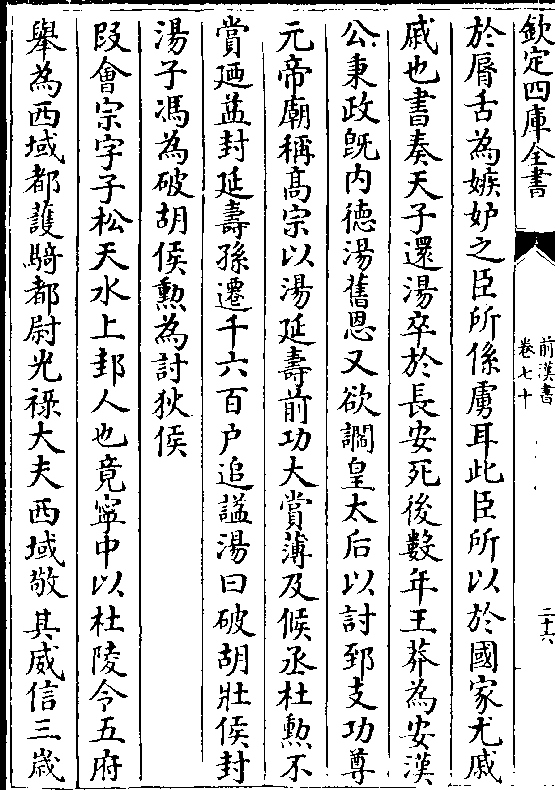 欽定四庫全書
前漢書
卷七十
二十六
於脣舌為嫉妒之臣所係虜耳此臣所以於國家尤戚
戚也書奏天子還湯卒於長安死後數年王莽為安漢
公秉政既内德湯舊恩又欲讇皇太后以討郅支功尊
元帝廟稱髙宗以湯延壽前功大賞薄及候丞杜勲不
賞廼益封延壽孫遷千六百户追諡湯曰破胡壯侯封
湯子馮為破胡侯勲為討狄侯
段會宗字子松天水上邽人也竟寧中以杜陵令五府
舉為西域都護騎都尉光祿大夫西域敬其威信三歳